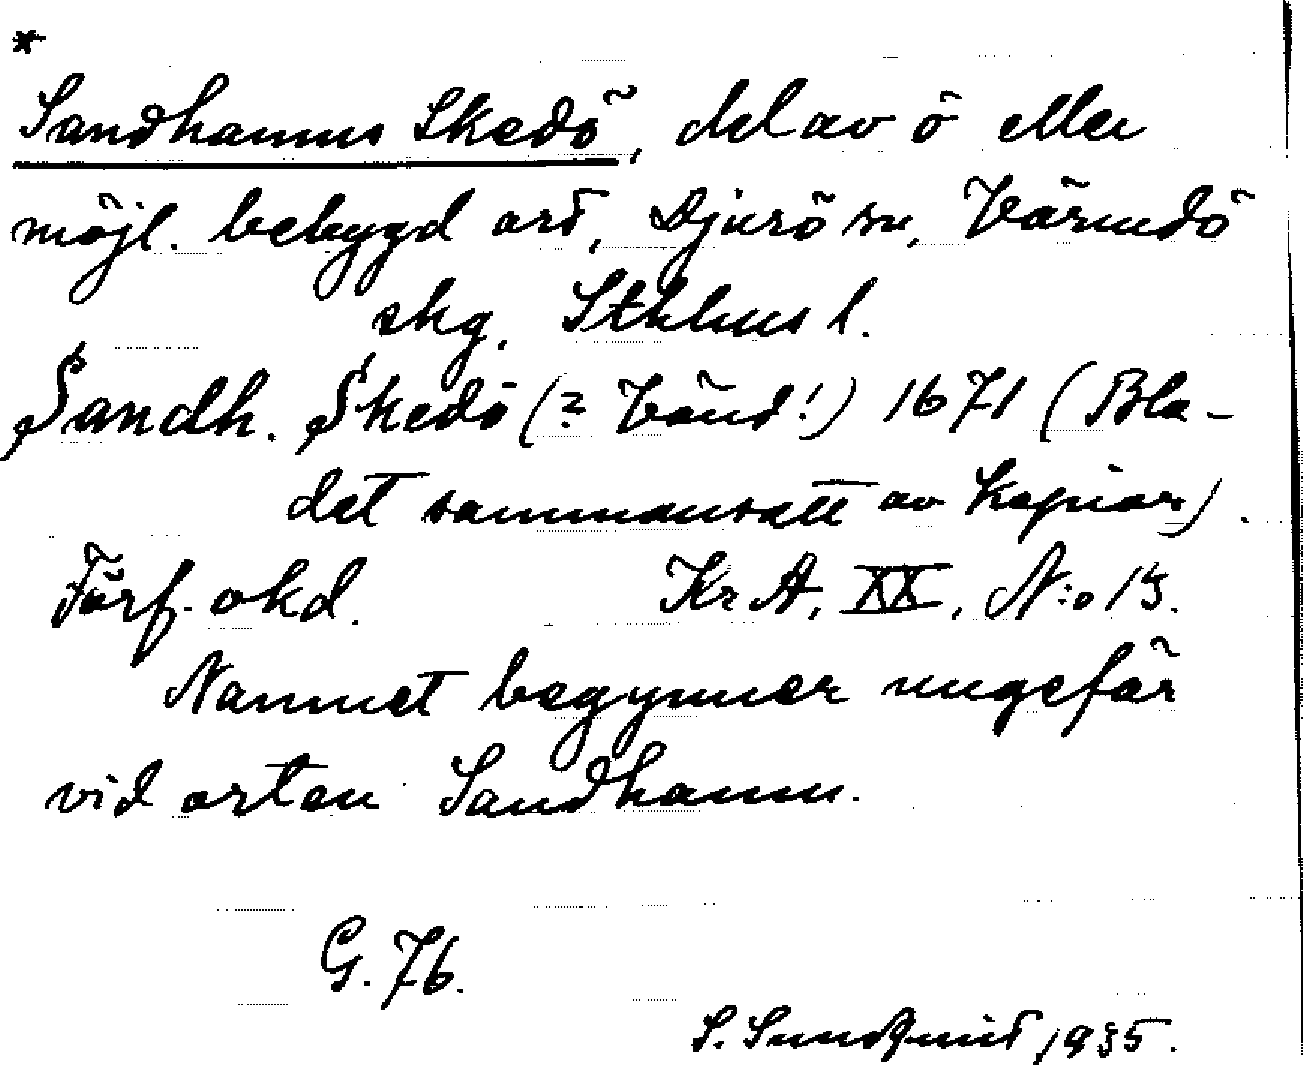 *
Sandhamns Skedö, del av ö eller
möjl. bebygd ort, Djurö sn, Värmdö
skg. Sthlms l.
Sandh. Skedö (? Vänd!) 1671 (Bla-
det sammansatt av kopior).
Förf. okd. Kr A, XX, N:o 13.
Namnet begynner ungefär
vid orten Sandhamn.
G. 76.
S. Sundqvist, 1935.